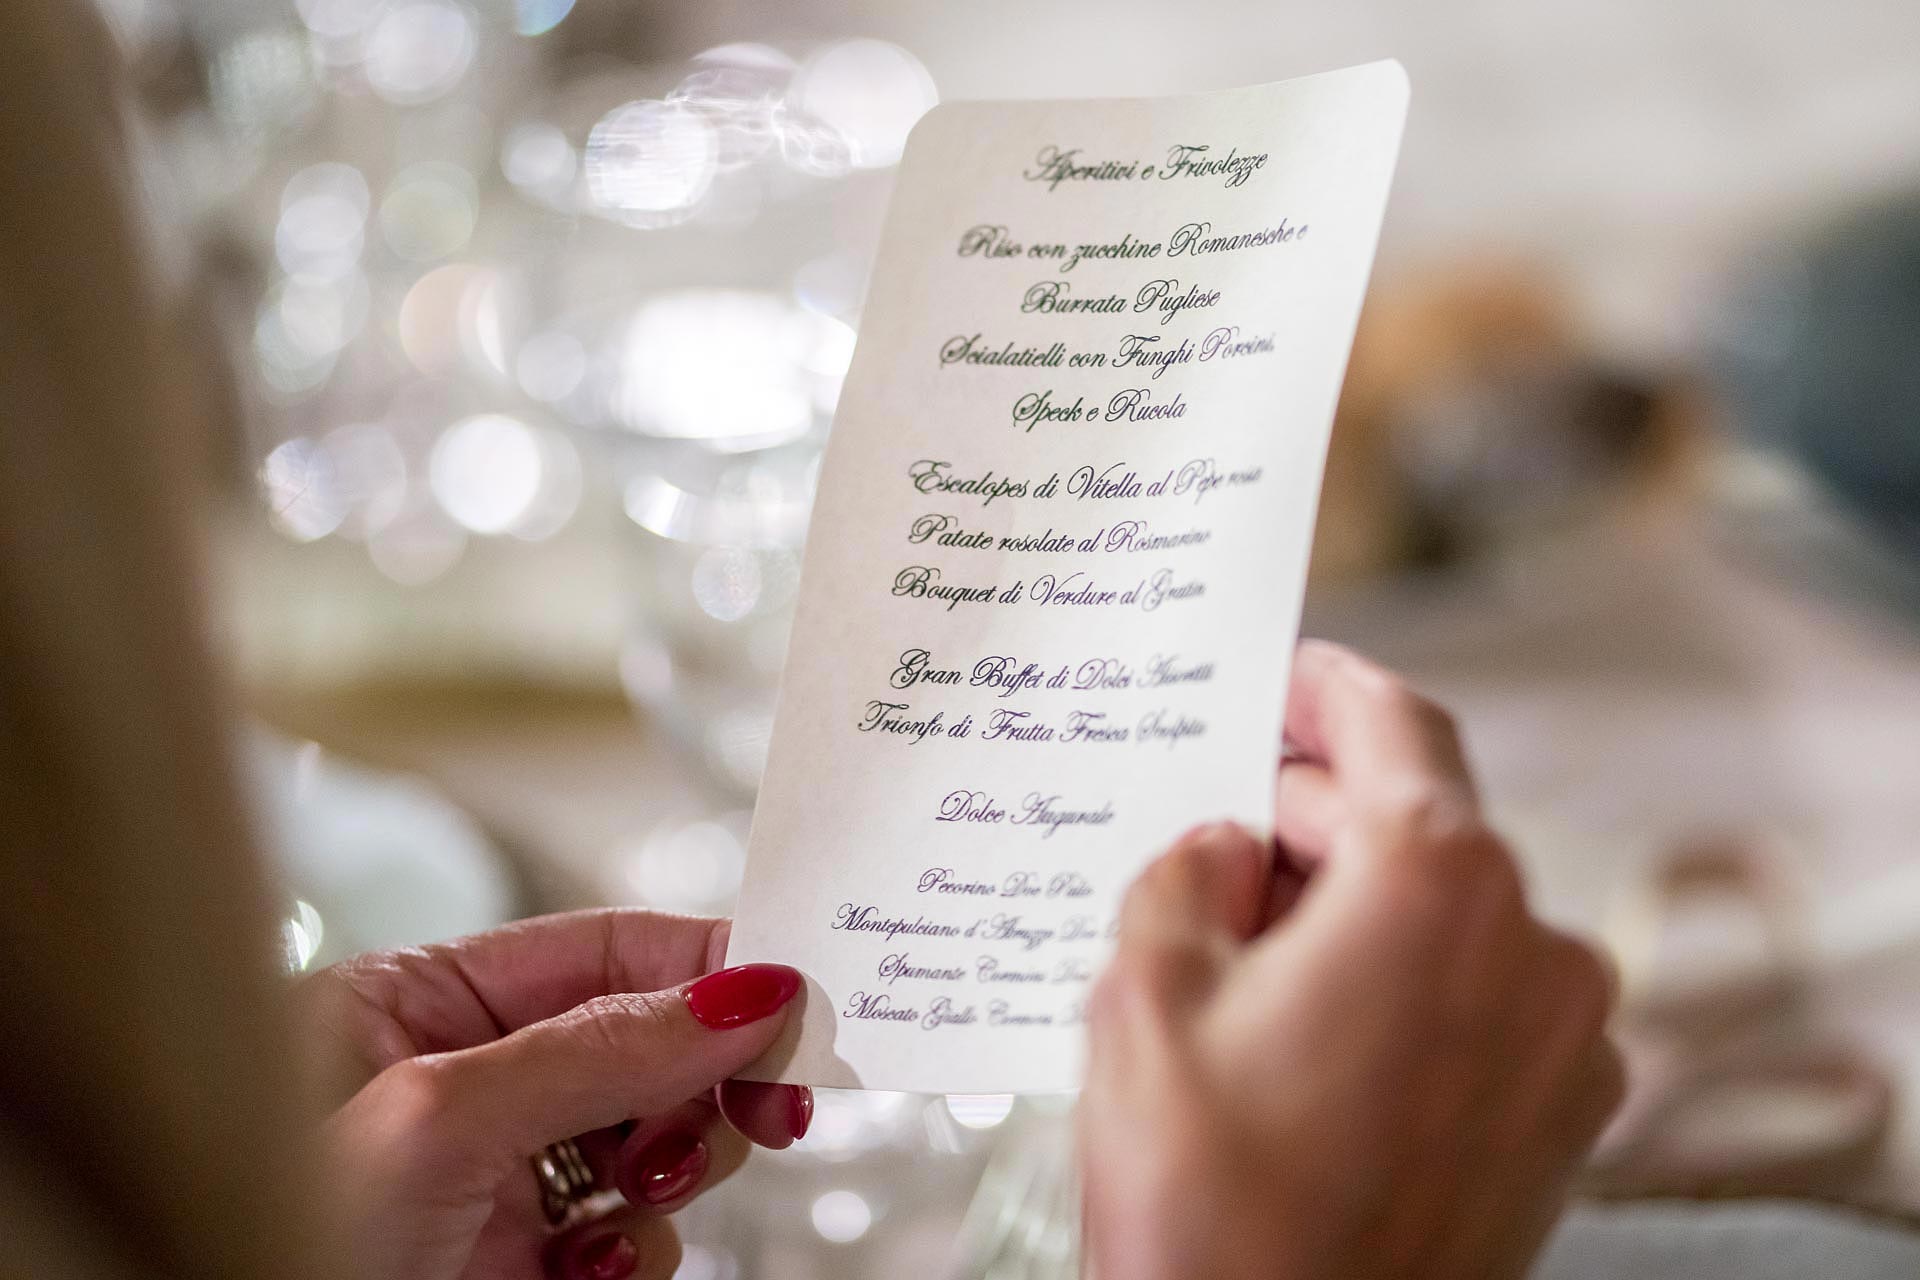 Aperitivi e Frivolezze
Riso con zucchine Romanesche e
Burrata Pugliese
Scialatielli con Funghi Porcini,
Speck e Rucola
Escalopes di Vitella al Pepe rosa
Patate rosolate al Rosmarino
Bouquet di Verdure al Gratin
Gran Buffet di Dolci
Trionfo di Frutta Fresca Scolpita
Dolce Augurale
Pecorino Doc
Montepulciano d'Abruzzo Doc
Spumante Cormons Doc
Moscato Giallo Cormons